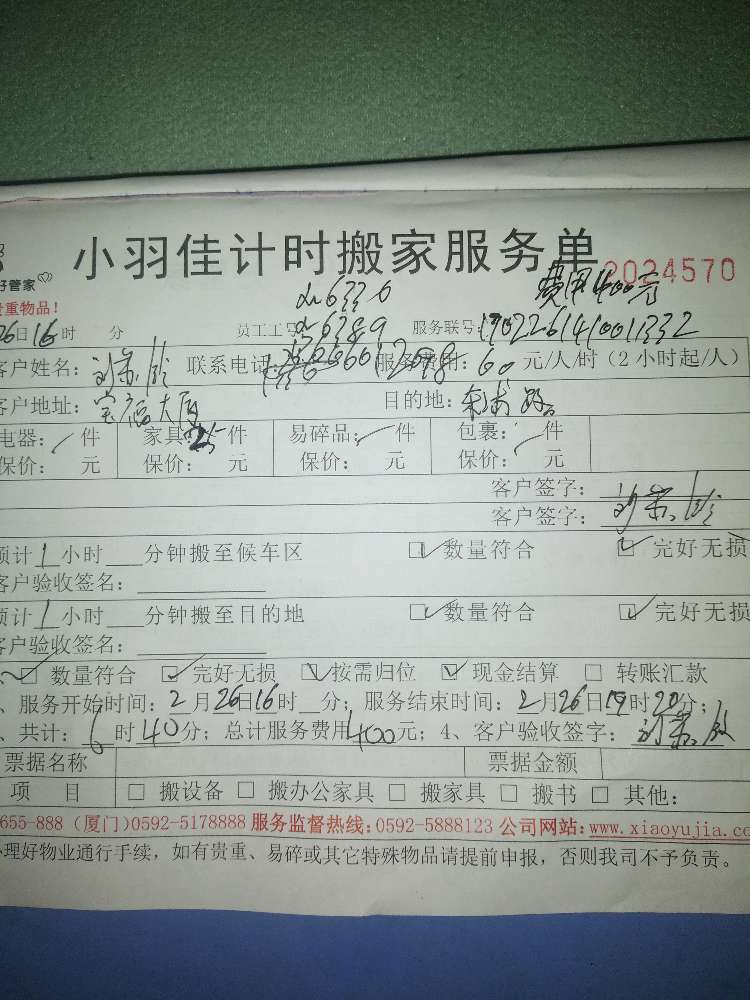 小羽佳计时搬家服务单 2024570
好管家
贵重物品! 费用400元
26日16时 分 员工工号 服务联号: 190226141001332
客户姓名: 联系电话 服务费用: 60 元/人/时(2小时起/人)
客户地址: 宝福大厦 目的地:
电器: 件 家具: 件 易碎品: 件 包裹: 件
保价: 元 保价: 元 保价: 元 保价: 元
客户签字:
客户签字:
预计1小时 分钟搬至候车区 ☑数量符合 ☑完好无损
客户验收签名:
预计1小时 分钟搬至目的地 ☑数量符合 ☑完好无损
客户验收签名:
☑数量符合 ☑完好无损 ☑按需归位 ☑现金结算 □转账汇款
、服务开始时间: 2月26日16时 分; 服务结束时间: 2月26日19时20分;
、共计: 6时40分; 总计服务费用400元; 4、客户验收签字:
票据名称 票据金额
项 目 □搬设备 □搬办公家具 □搬家具 □搬书 □其他:
655-888 (厦门)0592-5178888 服务监督热线:0592-5888123 公司网站:www.xiaoyujia.co
办理好物业通行手续,如有贵重、易碎或其它特殊物品请提前申报,否则我司不予负责。